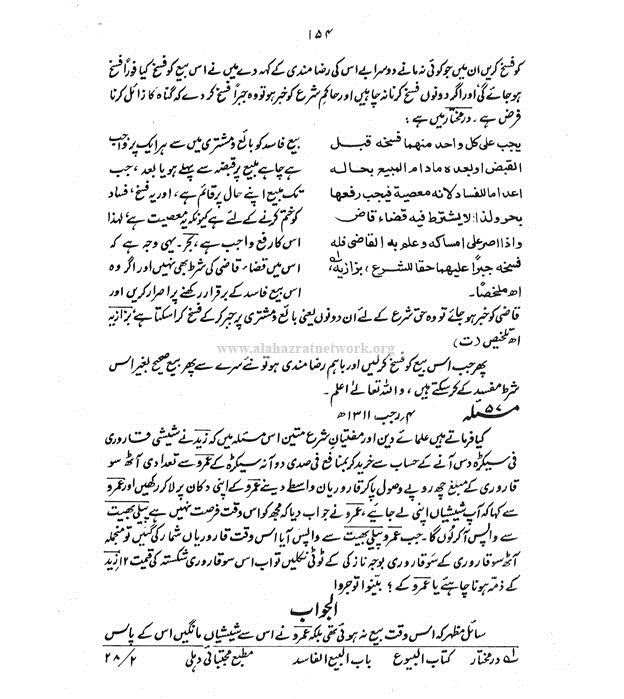 ۱۵۴
کو فسخ کریں ان میں جو کوئی نہ مانے دوسرا بے اس کی رضامندی کے کہہ دے میں نے اس بیع کو فسخ کیا فوراً فسخ
ہو جائے گی اور اگر دونوں فسخ کرنا نہ چاہیں اور حاکم شرع کو خبر ہو تو وہ جبراً فسخ کر دے کہ گناہ کا زائل کرنا
فرض ہے۔ درمختار میں ہے:
یجب علی کل واحد منھما فسخہ قبل
القبض او بعدہ مادام المبیع بحالہ
اعداما للفساد لانہ معصیۃ فیجب رفعھا
بحر ولذا لا یشترط فیہ قضاء قاض
واذا اصر علی امساکہ وعلم بہ القاضی فلہ
فسخہ جبرًا علیھما حقا للشرع، بزازیہ،
اھ ملخصًا۔
بیع فاسد کو بائع و مشتری میں سے ہر ایک پر واجب
ہے چاہے مبیع پر قبضہ سے پہلے ہو یا بعد، جب
تک مبیع اپنے حال پر قائم ہے، اور یہ فسخ، فساد
کو ختم کرنے کے لئے ہے کیونکہ یہ معصیت ہے لہذا
اس کا رفع واجب ہے، بحر۔ یہی وجہ ہے کہ
اس میں قضاء قاضی کی شرط بھی نہیں اور اگر وہ
اس بیع فاسد کے برقرار رکھنے پر اصرار کریں اور
قاضی کو خبر ہو جائے تو وہ حق شرع کے لئے ان دونوں یعنی بائع و مشتری پر جبر کر کے فسخ کرا سکتا ہے، بزازیہ
اھ تلخیص (ت)
www.alahazratnetwork.org
پھر جب اس بیع کو فسخ کرلیں اور باہم رضامندی ہو تو نئے سرے سے پھر بیع صحیح بغیر اس
شرط مفسد کے کر سکتے ہیں، واللہ تعالٰی اعلم۔
مسئلہ ۵۷ ۴ رجب ۱۳۱۱ھ
کیا فرماتے ہیں علمائے دین اور مفتیان شرع متین اس مسئلہ میں کہ زید نے شیشی قاروری
فی سیکڑہ دس آنے کے حساب سے خرید کر بمنافع فی صدی دو آنہ سیکڑہ کے عمرو سے تعدادی آٹھ سو
قاروری کے مبلغ چھ روپے وصول پاکر قاروریاں واسطے دینے عمرو کے اپنی دکان پر لاکر رکھیں اور عمرو
سے کہا کہ آپ شیشیاں اپنی لے جائیے، عمرو نے جواب دیا کہ مجھ کو اس وقت فرصت نہیں ہے پیلی بھیت
سے واپس آکر لوں گا۔ جب عمرو پیلی بھیت سے واپس آیا اس وقت قاروریاں شمار کی گئیں تو منجملہ
آٹھ سو قاروری کے سو قاروری بوجہ نازکی کے ٹوٹی نکلیں تو اب اس سو قاروری شکستہ کی قیمت ۱۲ / زید
کے ذمہ ہونا چاہئے یا عمرو کے؟ بینوا توجروا
الجواب
سائل مظہر کہ اس وقت بیع نہ ہوئی تھی بلکہ عمرو نے اس سے شیشیاں مانگیں اس کے پاس
۱؎ درمختار کتاب البیوع باب البیع الفاسد مطبع مجتبائی دہلی ۲/۲۸